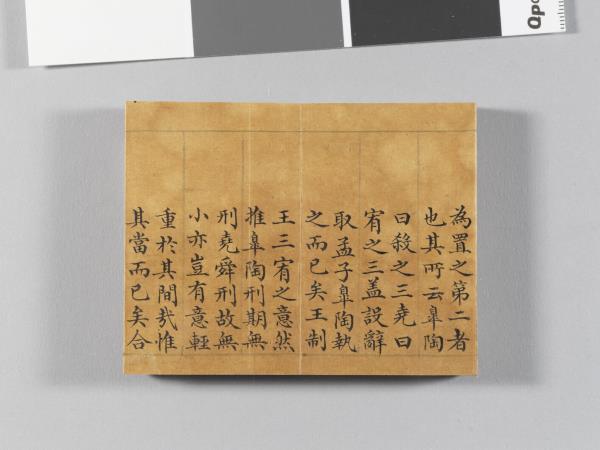 為置之第二者
也其所云臯陶
曰殺之三堯曰
宥之三盖設辭
取孟子臯陶執
之而已矣王制
王三宥之意然
推臯陶刑期無
刑堯舜刑故無
小亦豈有意輕
重於其間㢤惟
其當而已矣合